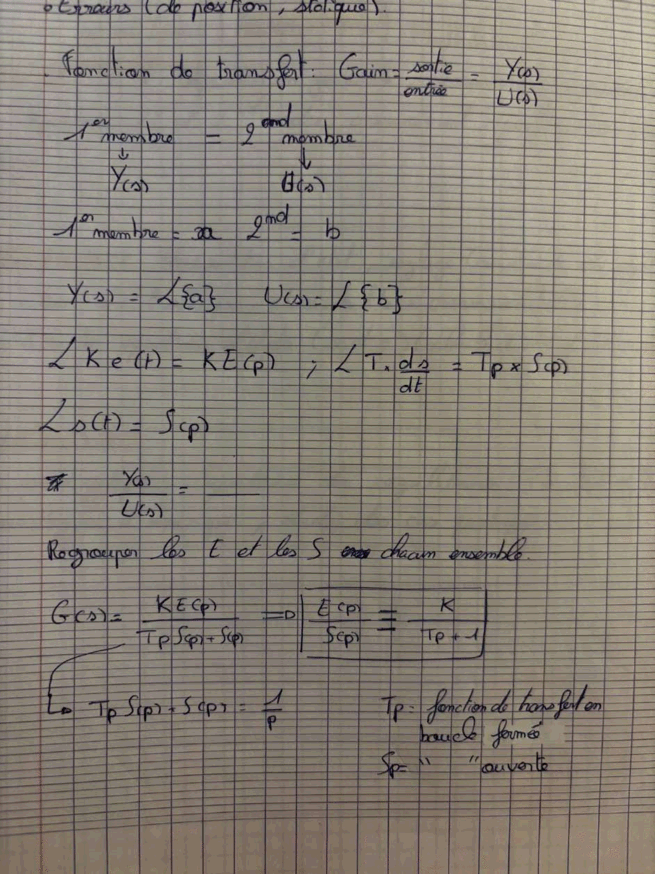 • Erreurs (de position, statique).
. Fonction de transfert : Gain = sortie / entrée = Y(s) / U(s)
1er membre = 2ond membre
↓ ↓
Y(s) U(s)
1er membre = a 2nd = b
Y(s) = L{a} U(s) = L{b}
L K e(t) = K E(p) ; L T. ds/dt = Tp x S(p)
L s(t) = S(p)
Y(s) / U(s) = ___
Regrouper les E et les S chacun ensemble.
G(s) = K E(p) / Tp S(p) + S(p) => E(p) / S(p) ≡ K / Tp + 1
↳ Tp S(p) + S(p) = 1/p Tp = fonction de transfert en
boucle fermée
Sp = " " ouverte